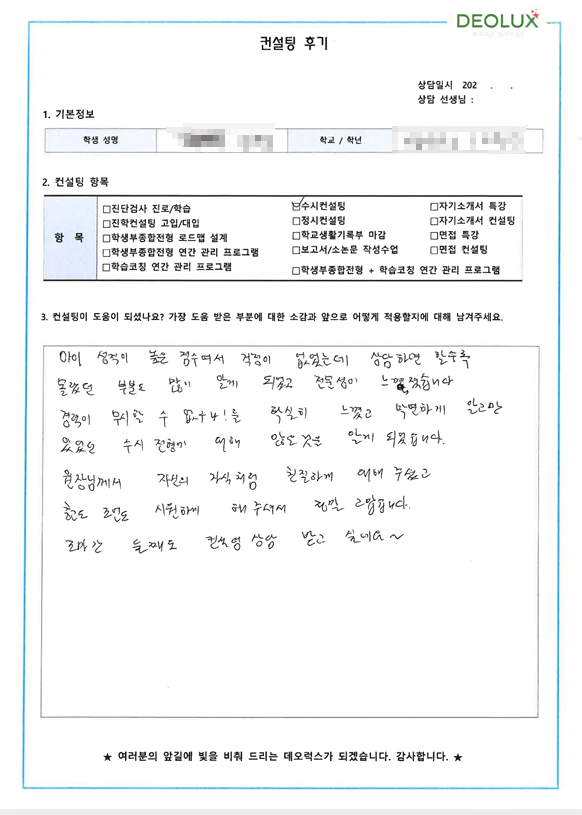 DEOLUX
컨설팅 후기
상담일시 202 . .
상담 선생님 :
1. 기본정보
학생 성명 학교 / 학년
2. 컨설팅 항목
항 목
□진단검사 진로/학습 ☑수시컨설팅 □자기소개서 특강
□진학컨설팅 고입/대입 □정시컨설팅 □자기소개서 컨설팅
□학생부종합전형 로드맵 설계 □학교생활기록부 마감 □면접 특강
□학생부종합전형 연간 관리 프로그램 □보고서/소논문 작성수업 □면접 컨설팅
□학습코칭 연간 관리 프로그램 □학생부종합전형 + 학습코칭 연간 관리 프로그램
3. 컨설팅이 도움이 되셨나요? 가장 도움 받은 부분에 대한 소감과 앞으로 어떻게 적용할지에 대해 남겨주세요.
아이 성적이 높은 점수여서 걱정이 없었는데 상담하면 할수록
몰랐던 부분도 많이 알게 되었고 전문성이 느껴졌습니다
경력이 무시할 수 없구나!를 확실히 느꼈고 막연하게 알고만
있었던 수시 전형에 대해 많은것을 알게 되었습니다.
원장님께서 자신의 자식처럼 친절하게 대해 주셨고
조언도 시원하게 해 주셔서 정말 고맙습니다.
둘째도 컨설팅 상담 받고 싶네요~
★ 여러분의 앞길에 빛을 비춰 드리는 데오럭스가 되겠습니다. 감사합니다. ★